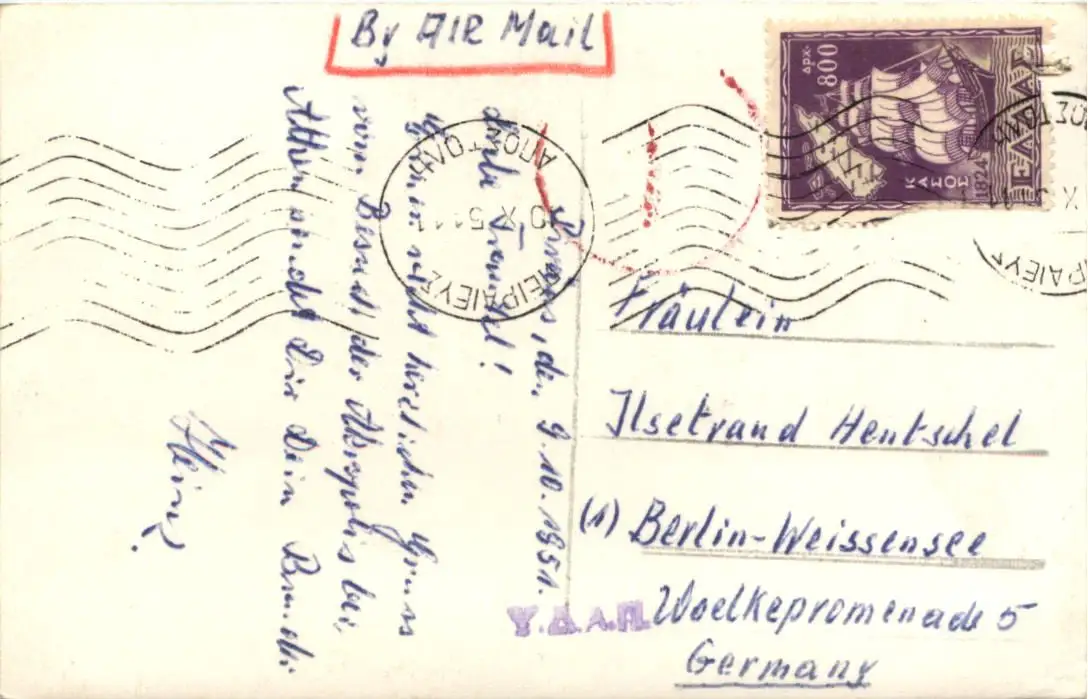 By AIR Mail
ΔΡΧ. 800
ΚΑΣΟΣ
1824
ΕΛΛΑΣ
ΠΕΙΡΑΙΕΥΣ
X 51 11
Piräus, den 9.10.1951.
Liebe Traudel!
recht herzlichen Gruss
vom Besuch der Akropolis bei
Athen sendet Dir Dein Bruder
Heinz
Fräulein
Ilsetraud Hentschel
(1) Berlin-Weissensee
Woelkepromenade 5
Germany
Υ.Δ.Α.Π.